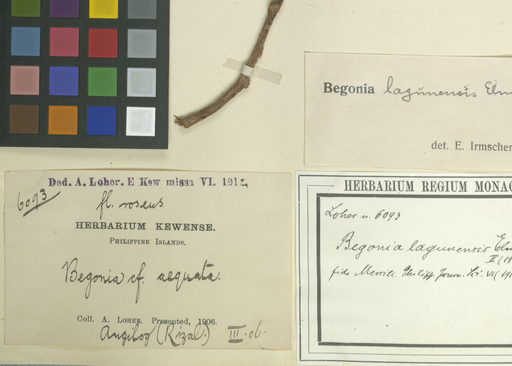 Begonia lagunensis Elm
det. E. Irmscher
Ded. A. Loher. E Kew missa VI. 1912
6093
fl. roseus
HERBARIUM KEWENSE.
PHILIPPINE ISLANDS.
Begonia cf. aequata.
Coll. A. LOHER. Presented, 1906.
Angilog (Rizal.) III. 06.
HERBARIUM REGIUM MONAC
Loher n. 6093
Begonia lagunensis Elm
II (19
fide Merrill. Philipp. Journ. Sc. VI (191